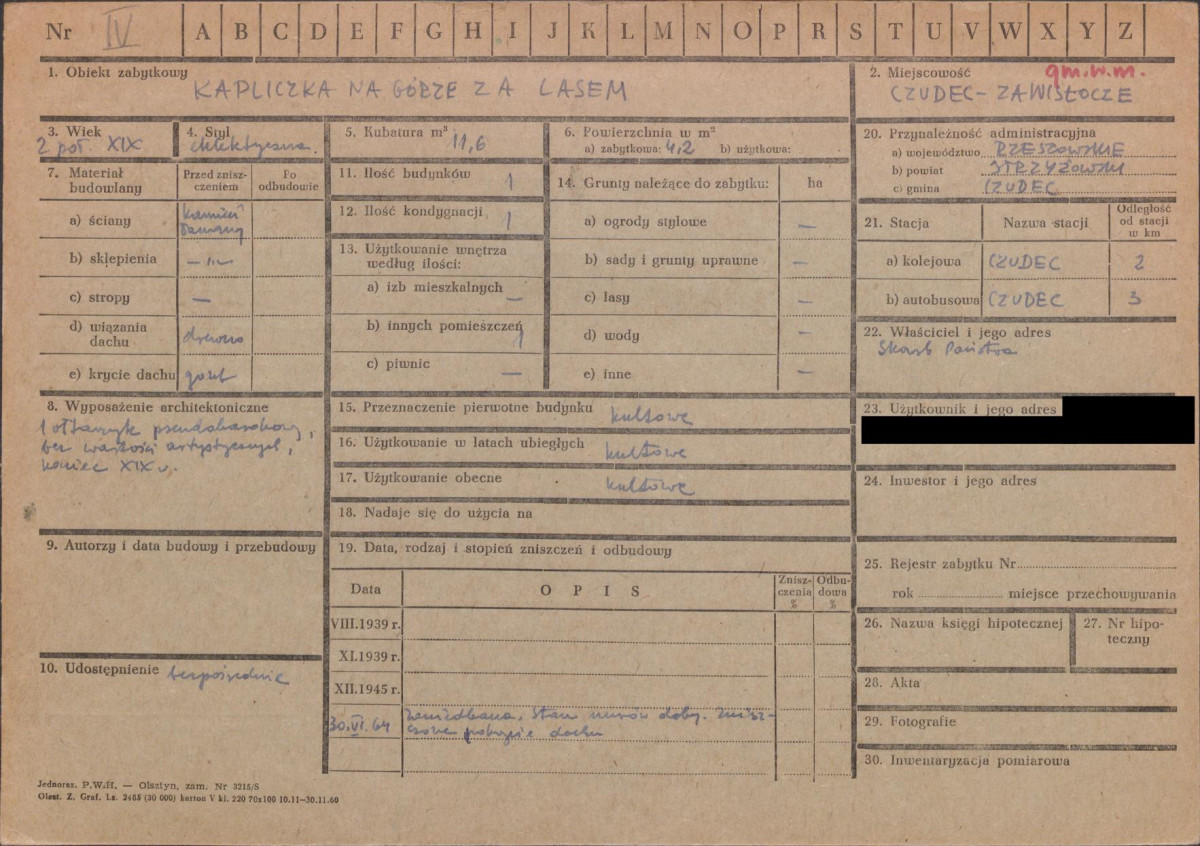 Nr IV A B C D E F G H I J K L M N O P R S T U V W X Y Z
1. Obiekt zabytkowy
KAPLICZKA NA GÓRZE ZA LASEM
2. Miejscowość gm.w.m.
CZUDEC-ZAWISŁOCZE
3. Wiek
2 poł. XIX
4. Styl
eklektyczna.
5. Kubatura m³
11,6
6. Powierzchnia w m²
a) zabytkowa: 4,2 b) użytkowa:
7. Materiał budowlany
Przed zniszczeniem
Po odbudowie
a) ściany kamień łamany
b) sklepienia —"—
c) stropy —
d) wiązania dachu drewno
e) krycie dachu gont
8. Wyposażenie architektoniczne
1 ołtarzyk pseudobarokowy,
bez wartości artystycznych,
koniec XIX w.
9. Autorzy i data budowy i przebudowy
10. Udostępnienie bezpośrednie
11. Ilość budynków 1
12. Ilość kondygnacji 1
13. Użytkowanie wnętrza
według ilości:
a) izb mieszkalnych —
b) innych pomieszczeń 1
c) piwnic —
14. Grunty należące do zabytku: ha
a) ogrody stylowe —
b) sady i grunty uprawne —
c) lasy —
d) wody —
e) inne —
15. Przeznaczenie pierwotne budynku kultowe
16. Użytkowanie w latach ubiegłych kultowe
17. Użytkowanie obecne kultowe
18. Nadaje się do użycia na
19. Data, rodzaj i stopień zniszczeń i odbudowy
Data OPIS Zniszczenia % Odbudowa %
VIII.1939 r.
XI.1939 r.
XII.1945 r.
30.VI.64 zaniedbana. Stan murów dobry. Znisz-
czone pokrycie dachu
20. Przynależność administracyjna
a) województwo RZESZOWSKIE
b) powiat STRZYŻOWSKI
c) gmina CZUDEC
21. Stacja Nazwa stacji Odległość od stacji w km
a) kolejowa CZUDEC 2
b) autobusowa CZUDEC 3
22. Właściciel i jego adres
Skarb Państwa
23. Użytkownik i jego adres
24. Inwestor i jego adres
25. Rejestr zabytku Nr
rok miejsce przechowywania
26. Nazwa księgi hipotecznej
27. Nr hipo-
teczny
28. Akta
29. Fotografie
30. Inwentaryzacja pomiarowa
Jednoraz. P.W.H. — Olsztyn, zam. Nr 3215/S
Olszt. Z. Graf. Lz. 2465 (30 000) karton V kl. 220 70x100 10.11—30.11.60